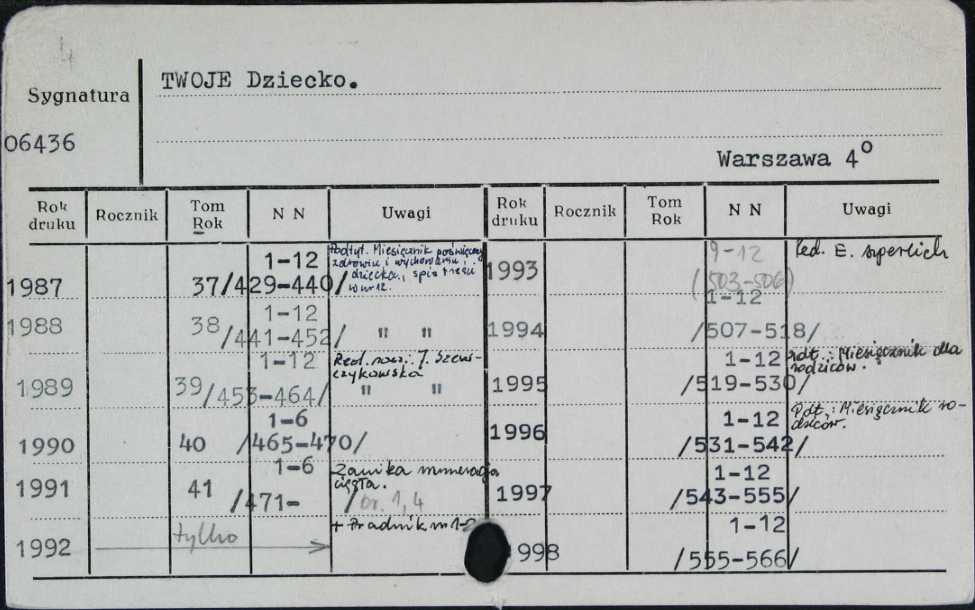 4
TWOJE Dziecko.
Sygnatura
06436
Warszawa 4°
Rok druku Rocznik Tom Rok N N Uwagi Rok druku Rocznik Tom Rok N N Uwagi
1987 37/429-440/ 1-12 Podtyt. Miesięcznik poświęcony
zdrowiu i wychowaniu
dziecka, spis treści
w nr 12.
1988 38 /441-452/ 1-12 " "
1989 39/453-464/ 1-12 Red. nacz. J. Szew-
czykowska
" "
1990 40 /465-470/ 1-6
1991 41 /471- / 1-6 Zanika numeracja
ciągła.
br. 1,4
1992 tylko + Pradnik nr 1-2
1993 9-12 /503-506/ Red. E.
1994 1-12 /507-518/
1995 1-12 /519-530/ Pdt.: Miesięcznik dla
rodziców.
1996 1-12 /531-542/ Pdt.: Miesięcznik ro-
dziców.
1997 1-12 /543-555/
998 1-12 /555-566/